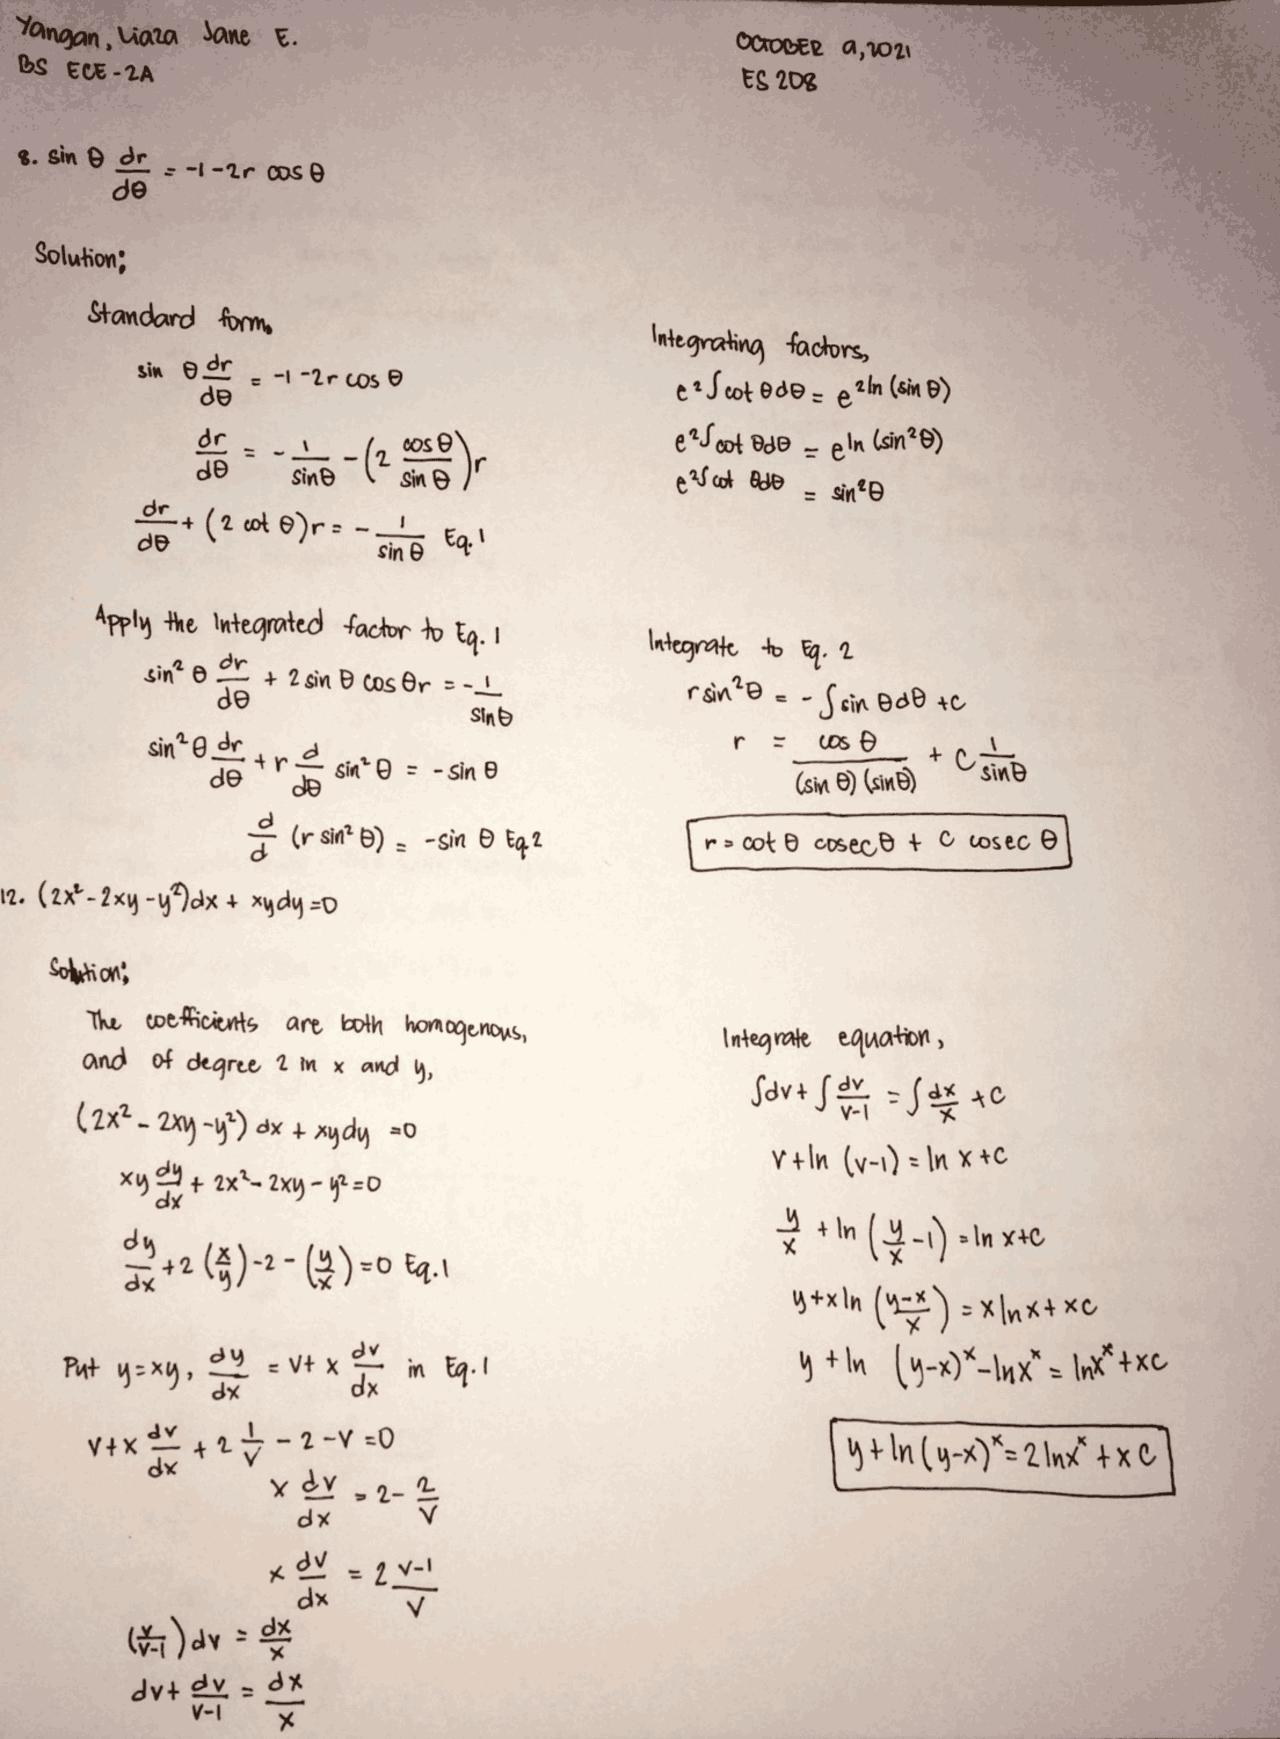 Yangan, Liaza Jane E.
BS ECE-2A
OCTOBER 9, 2021
ES 208
8. sin θ dr/dθ = -1-2r cos θ
Solution;
Standard form,
sin θ dr/dθ = -1-2r cos θ
dr/dθ = - 1/sinθ - (2 cosθ/sin θ)r
dr/dθ + (2 cot θ)r = - 1/sin θ Eq.1
Integrating factors,
e^2∫cot θdθ = e^2ln (sin θ)
e^2∫cot θdθ = eln (sin²θ)
e^2∫cot θdθ = sin²θ
Apply the Integrated factor to Eq. 1
sin² θ dr/dθ + 2 sin θ cos θr = - 1/sinθ
sin²θ dr/dθ + r d/dθ sin²θ = - sin θ
d/d (r sin² θ) = -sin θ Eq.2
Integrate to Eq. 2
r sin²θ = - ∫sin θdθ +c
r = cos θ/(sin θ)(sinθ) + C 1/sinθ
r = cot θ cosec θ + C cosec θ
12. (2x²-2xy-y²)dx + xydy=0
Solution;
The coefficients are both homogenous,
and of degree 2 in x and y,
(2x²-2xy-y²) dx + xydy =0
xy dy/dx + 2x²-2xy-y²=0
dy/dx +2 (x/y)-2-(y/x)=0 Eq.1
Put y=xy, dy/dx = v+ x dv/dx in Eq.1
v+x dv/dx + 2 1/v - 2-v =0
x dv/dx = 2- 2/v
x dv/dx = 2 v-1/v
(v/v-1)dv = dx/x
dv+ dv/v-1 = dx/x
Integrate equation,
∫dv+∫dv/v-1 = ∫dx/x +C
v+ln (v-1) = ln x+c
y/x + ln (y/x -1) = ln x+c
y+xln (y-x/x) = xlnx+xc
y + ln (y-x)^x-lnx^x = lnx^x+xc
y+ln(y-x)^x=2lnx^x+xC